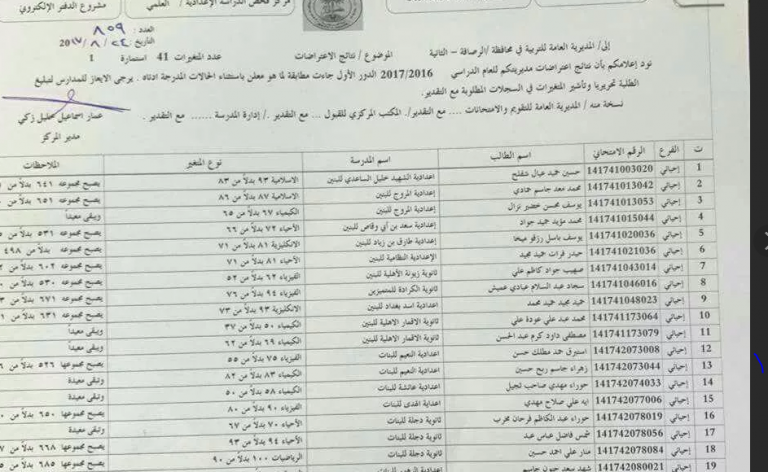 مركز فحص الدراسة الإعدادية / العلمي
مشروع الدفتر الإلكتروني
العدد: ٨٥٩
التاريخ: ٢٠١٧/٨/٢٤
إلى/ المديرية العامة للتربية في محافظة /الرصافة - الثانية
الموضوع / نتائج الاعتراضات
عدد المتغيرات 41 استمارة 1
نود إعلامكم بأن نتائج اعتراضات مديريتكم للعام الدراسي 2017/2016 الدور الأول جاءت مطابقة لما هو معلن باستثناء الحالات المدرجة ادناه. يرجى الايعاز للمدارس لتبليغ
الطلبة تحريريا وتأشير المتغيرات في السجلات المطلوبة مع التقدير.
نسخة منه / المديرية العامة للتقويم والامتحانات .... مع التقدير/. المكتب المركزي للقبول ... مع التقدير ./ إدارة المدرسة ...... مع التقدير .
عمار اسماعيل خليل زكي
مدير المركز
ت الفرع الرقم الامتحاني اسم الطالب اسم المدرسة نوع المتغير الملاحظات
1 إحيائي 141741003020 حسين حميد عيال شلح إعدادية الشهيد خليل الساعدي للبنين الاسلامية ٩٣ بدلاً من ٨٣ يصبح مجموعه ٦٤١ بدلاً من
2 إحيائي 141741013042 محمد معد جاسم حمادي إعدادية المروج للبنين الاسلامية ٨٧ بدلاً من ٨٦ يصبح مجموعه ٦٥١ بدلاً من
3 إحيائي 141741013053 يوسف محسن خضير نزال إعدادية المروج للبنين الكيمياء ٦٧ بدلاً من ٦٥ ويبقى معيداً
4 إحيائي 141741015044 محمد مؤيد حميد جواد إعدادية سعد بن أبي وقاص للبنين الأحياء ٧٢ بدلاً من ٦٦ يصبح مجموعه ٥٣١ بدلاً من
5 إحيائي 141741020036 يوسف باسل رزقو ميخا إعدادية طارق بن زياد للبنين الانكليزية ٨١ بدلاً من ٧١ يصبح مجموعه بدلاً من ٤٩٨
6 إحيائي 141741021036 حيدر فرات حميد مجيد الإعدادية النظامية للبنين الأحياء ٨١ بدلاً من ٧١ يصبح مجموعه ٦٠٢ بدلاً من
7 إحيائي 141741043014 صهيب جواد كاظم علي ثانوية زيونة الأهلية للبنين الفيزياء ٦٢ بدلاً من ٥٢ يصبح مجموعه ٥٣٠ بدلاً من
8 إحيائي 141741046016 سجاد عبد السلام عبادي ثانوية الكرادة للمتميزين الفيزياء ٩٤ بدلاً من ٧٦ يصبح مجموعه ٦٧١ بدلاً من
9 إحيائي 141741048023 حميد مجيد حميد محمد إعدادية اسد بغداد للبنين الانكليزية ٩٣ بدلاً من ٧٣ يصبح مجموعه ٦٣١ بدلاً من
10 إحيائي 141741173064 محمد عبد علي عودة علي ثانوية الاقمار الاهلية للبنين الكيمياء ٥٠ بدلاً من ٣٧ ويبقى معيداً
11 إحيائي 141741173079 مصطفى داود كرم عبد الحسن ثانوية الاقمار الاهلية للبنين الكيمياء ٦٩ بدلاً من ٦٢ ويبقى معيداً
12 إحيائي 141742073008 استبرق حمد مطلك حسن إعدادية النعيم للبنات الفيزياء ٧٥ بدلاً من ٥٥ يصبح مجموعها ٥٢٦ بدلاً من
13 إحيائي 141742073044 زهراء جاسم ربح حسين إعدادية النعيم للبنات الكيمياء ٨٣ بدلاً من ٨٢ وتبقى معيدة
14 إحيائي 141742074033 حوراء مهدي صاحب إعدادية عائشة للبنات الكيمياء ٥٨ بدلاً من ٥٠ وتبقى معيدة
15 إحيائي 141742077006 ايه علي صلاح مهدي إعدادية الهدى للبنات الفيزياء ٩٠ بدلاً من ٨٠ يصبح مجموعها ٦٥٠ بدلاً من
16 إحيائي 141742078019 حوراء عبد الكاظم فرحان ثانوية دجلة للبنات الأحياء ٧٠ بدلاً من ٦٧ وتبقى معيدة
17 إحيائي 141742078056 شمس فاضل عباس عبد ثانوية دجلة للبنات الأحياء ٩٤ بدلاً من ٩٣ يصبح مجموعها ٦٦٨ بدلاً من
18 إحيائي 141742078084 منار علي احمد حسين ثانوية دجلة للبنات الرياضيات ١٠٠ بدلاً من ٩٠ يصبح مجموعها ٦٨٥ بدلاً من
إحيائي 141742080021 شهد سعد جاسم